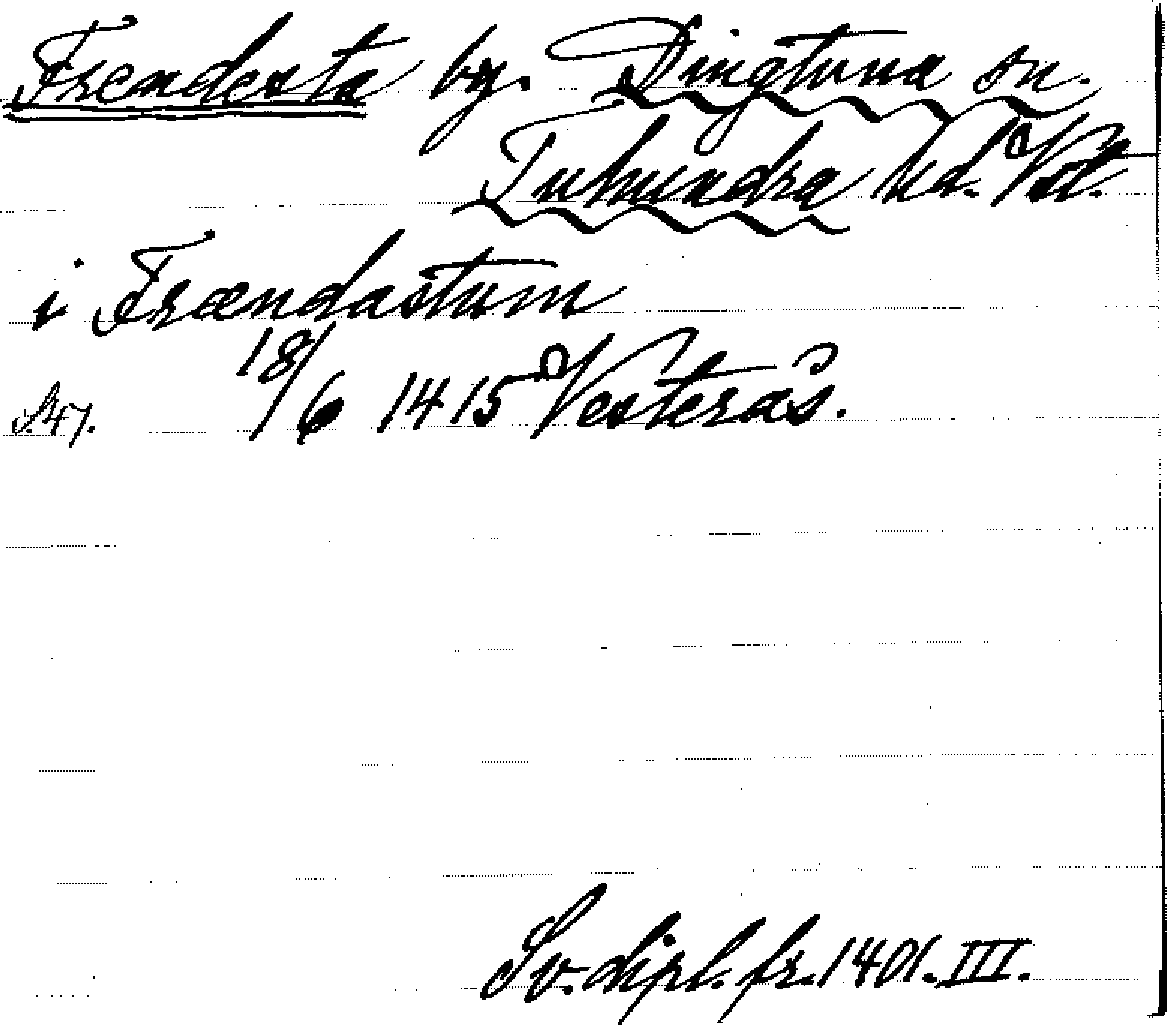 Frendesta by. Dingtuna sn.
Tuhundra hd. Vstl.
i Frændastum
18/6 1415 Vesterås.
S. 47.
Sv. dipl. fr. 1401. III.